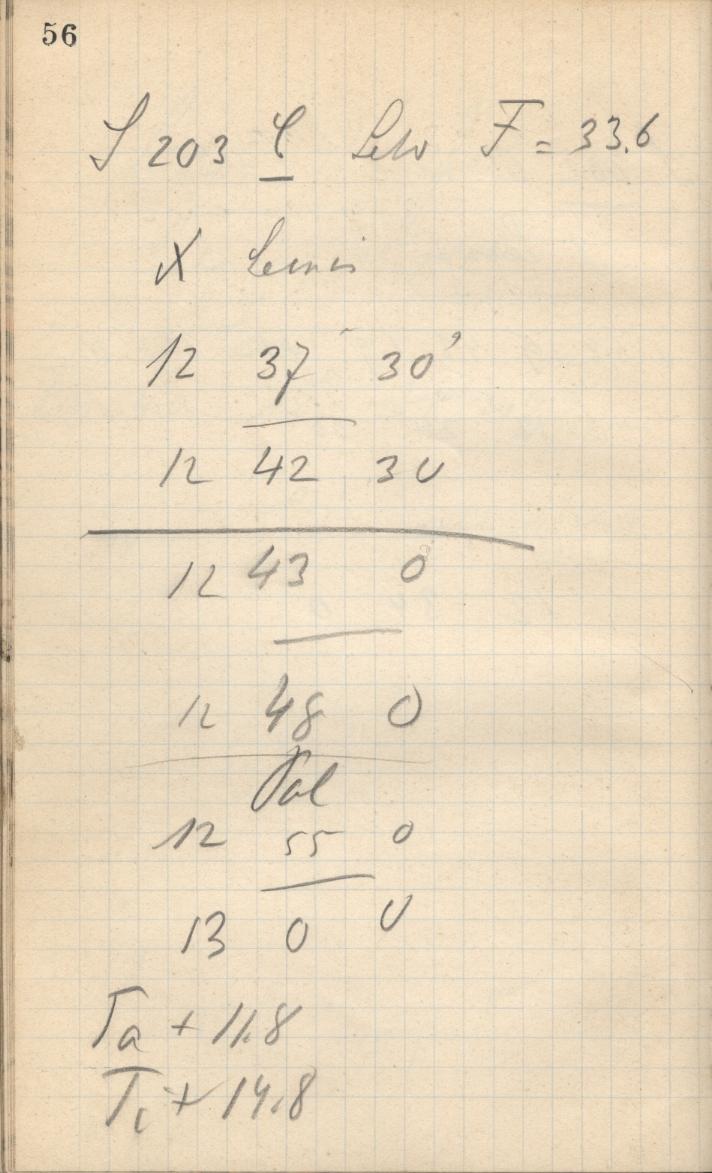 56
S 203 F = 33.6
X
12 37 30
12 42 30
12 43 0
12 48 0
Pol
12 55 0
13 0 0
Ta + 11.8
Ti + 14.8